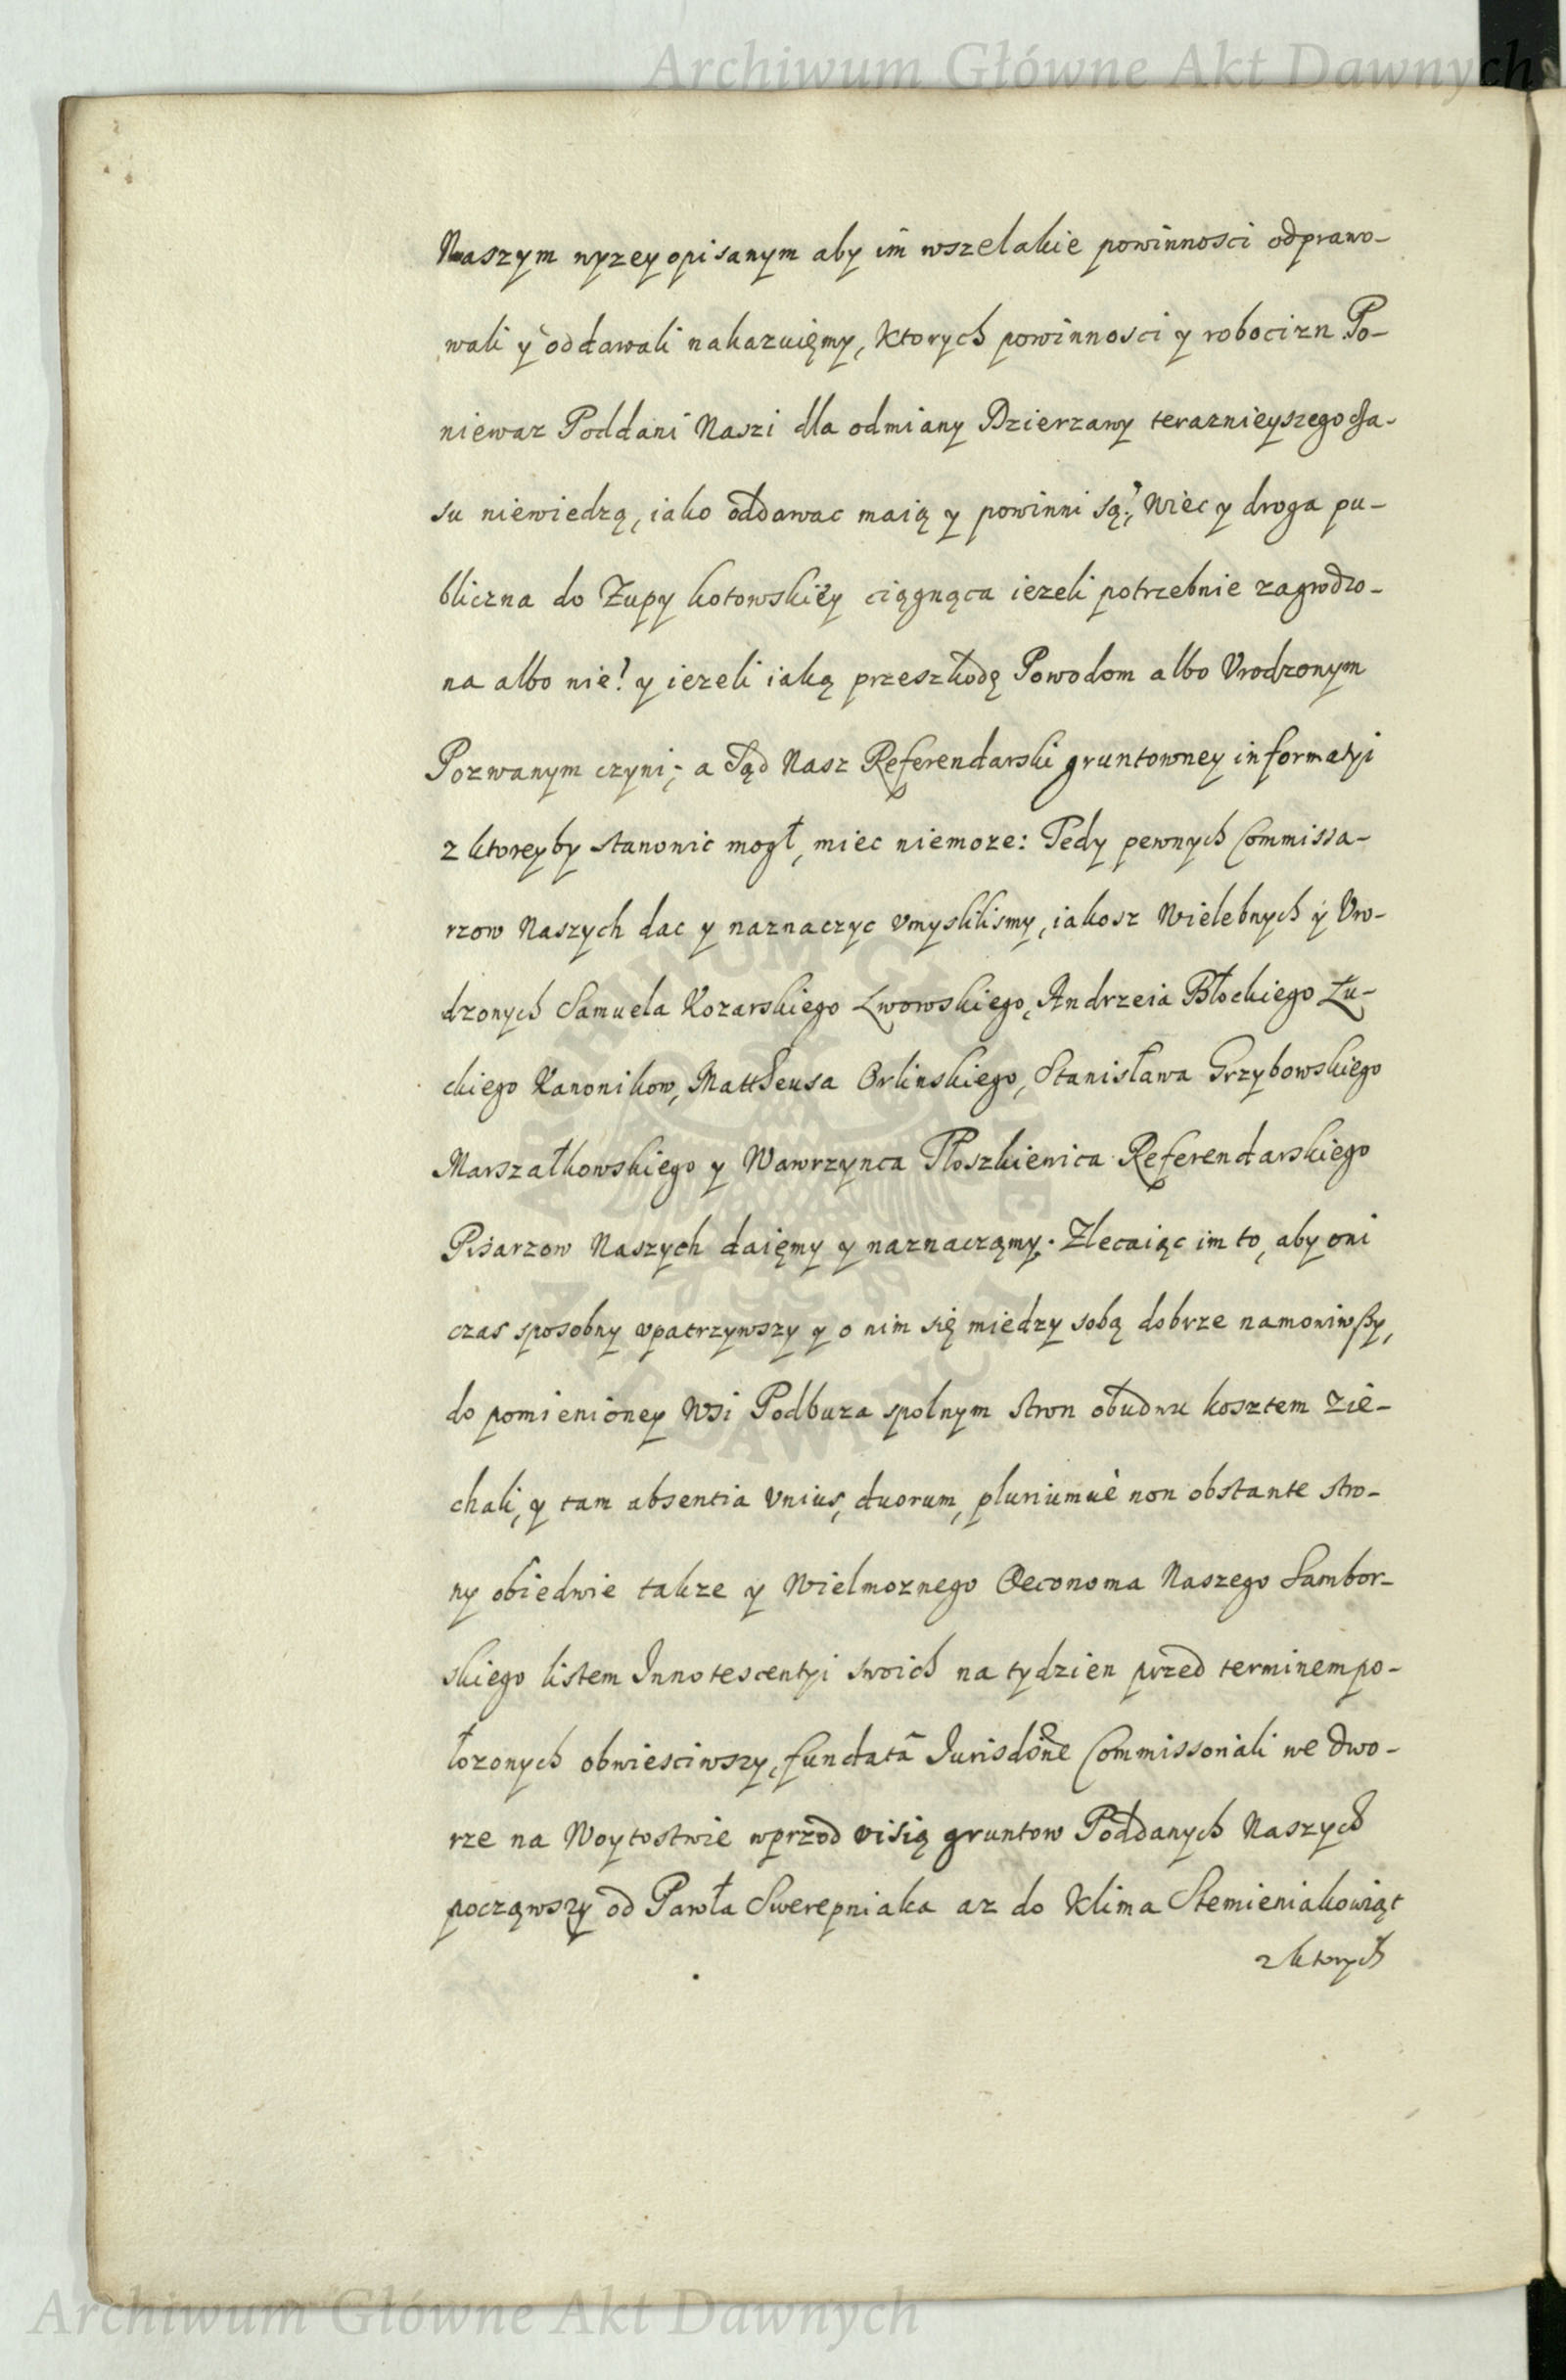 Archiwum Główne Akt Dawnych
Naszym wyzey opisanym aby im wszelakie powinnosci odprawo-
wali y oddawali nakazuięmy, Ktorych powinnosci y robocizn Po-
niewaz Poddani Naszi dla odmiany Dzierzawy teraznieyszego cza-
su niewiedzą, iako oddawac maią y powinni są?, Wiec y droga pu-
bliczna do Zupy kotowskiey ciągnąca iezeli potrzebnie zagrodzo-
na albo nie? y iezeli iaką przeszkodę Powodom albo Vrodzonym
Pozwanym czyni; a Sąd Nasz Referendarski gruntowney informatyi
z ktoreyby stanowic mogł, miec niemoze: Tedy pewnych Commissa-
rzow Naszych dac y naznaczyc vmyslilismy, iakosz Wielebnych y Vro-
dzonych Samuela Kozarskiego Lwowskiego, Andrzeia Błockiego Łu-
ckiego Kanonikow, Mattheusa Orlinskiego, Stanisława Grzybowskiego
Marszałkowskiego y Wawrzynca Płoszkiewica Referendarskiego
Pisarzow Naszych daięmy y naznaczamy. Zlecaiąc im to, aby oni
czas sposobny vpatrzywszy y o nim się miedzy sobą dobrze namowiwszy,
do pomienioney Wsi Podbuza spolnym stron obudwu kosztem zie-
chali, y tam absentia vnius, duorum, pluriumuè non obstante stro-
ny obiedwie takze y Wielmoznego Oeconoma Naszego Sambor-
skiego listem Innotescentyi swoich na tydzien przed terminem po-
łozonych obwiesciwszy, fundatã Iurisdõne Commissoriali we dwo-
rze na Woytostwie wprzod visią gruntow Poddanych Naszych
począwszy od Pawła Swerepniaka az do Klima Stemieniakowiąt
z ktorych
ARCHIWUM GŁÓWNE AKT DAWNYCH
Archiwum Główne Akt Dawnych